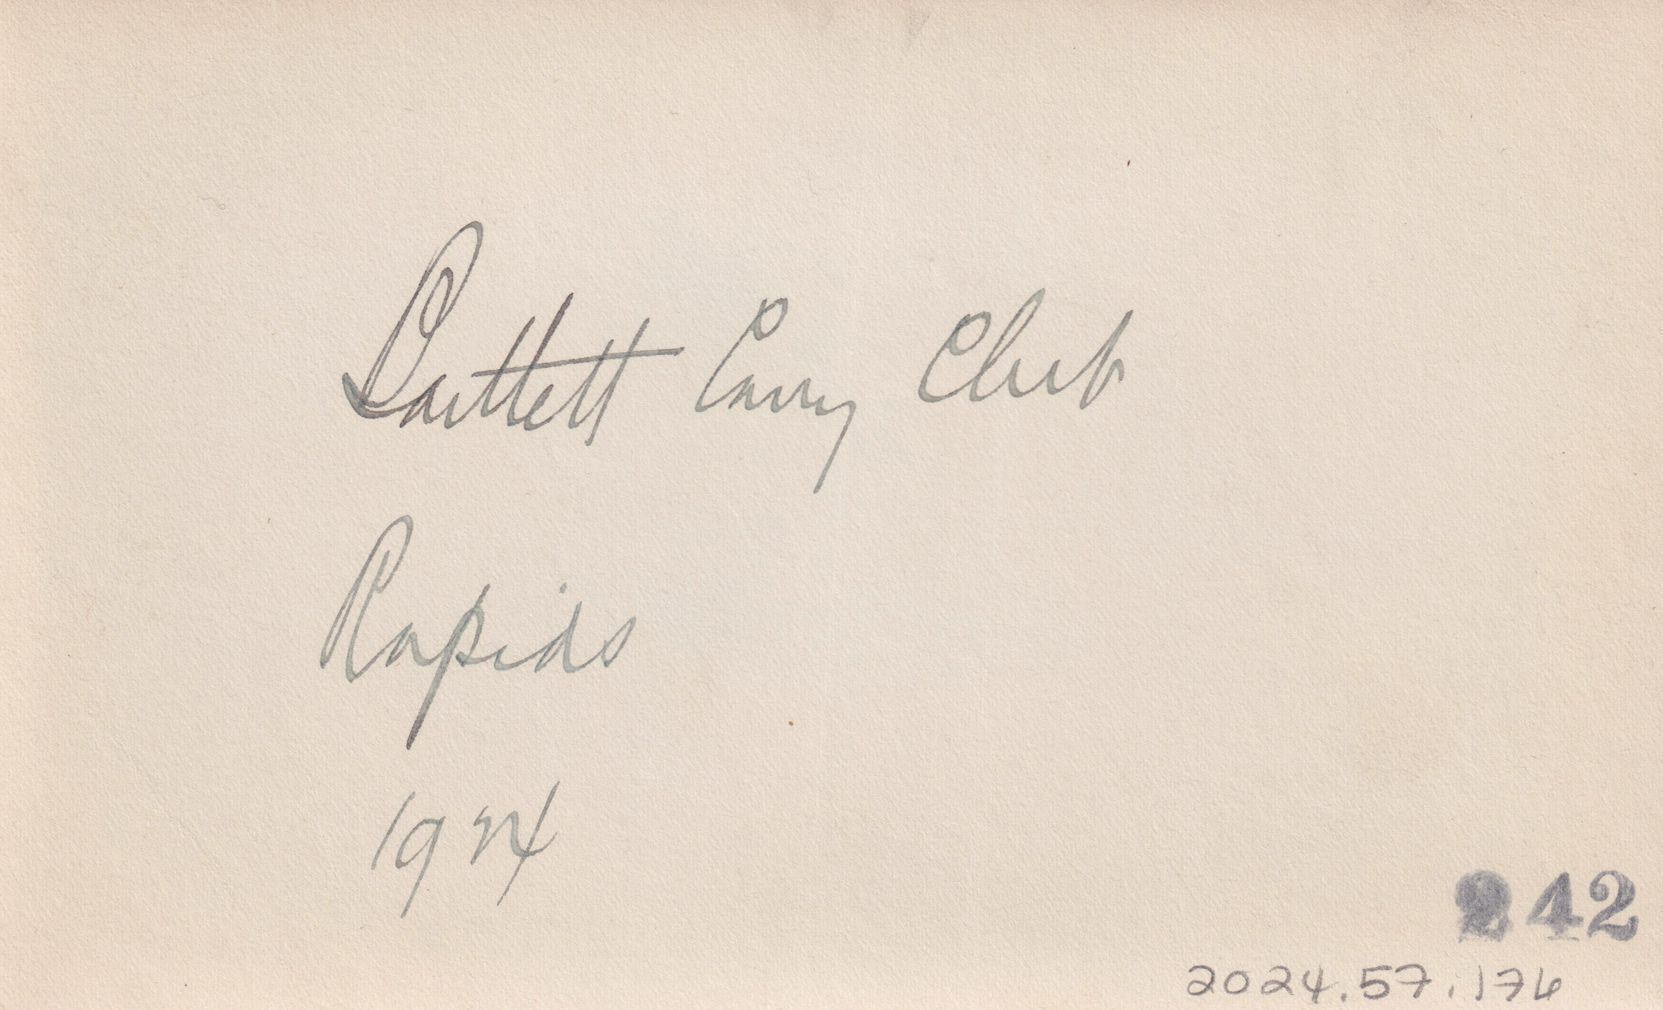 Bartlett Carry Club
Rapids
1924
242
2024.57.176